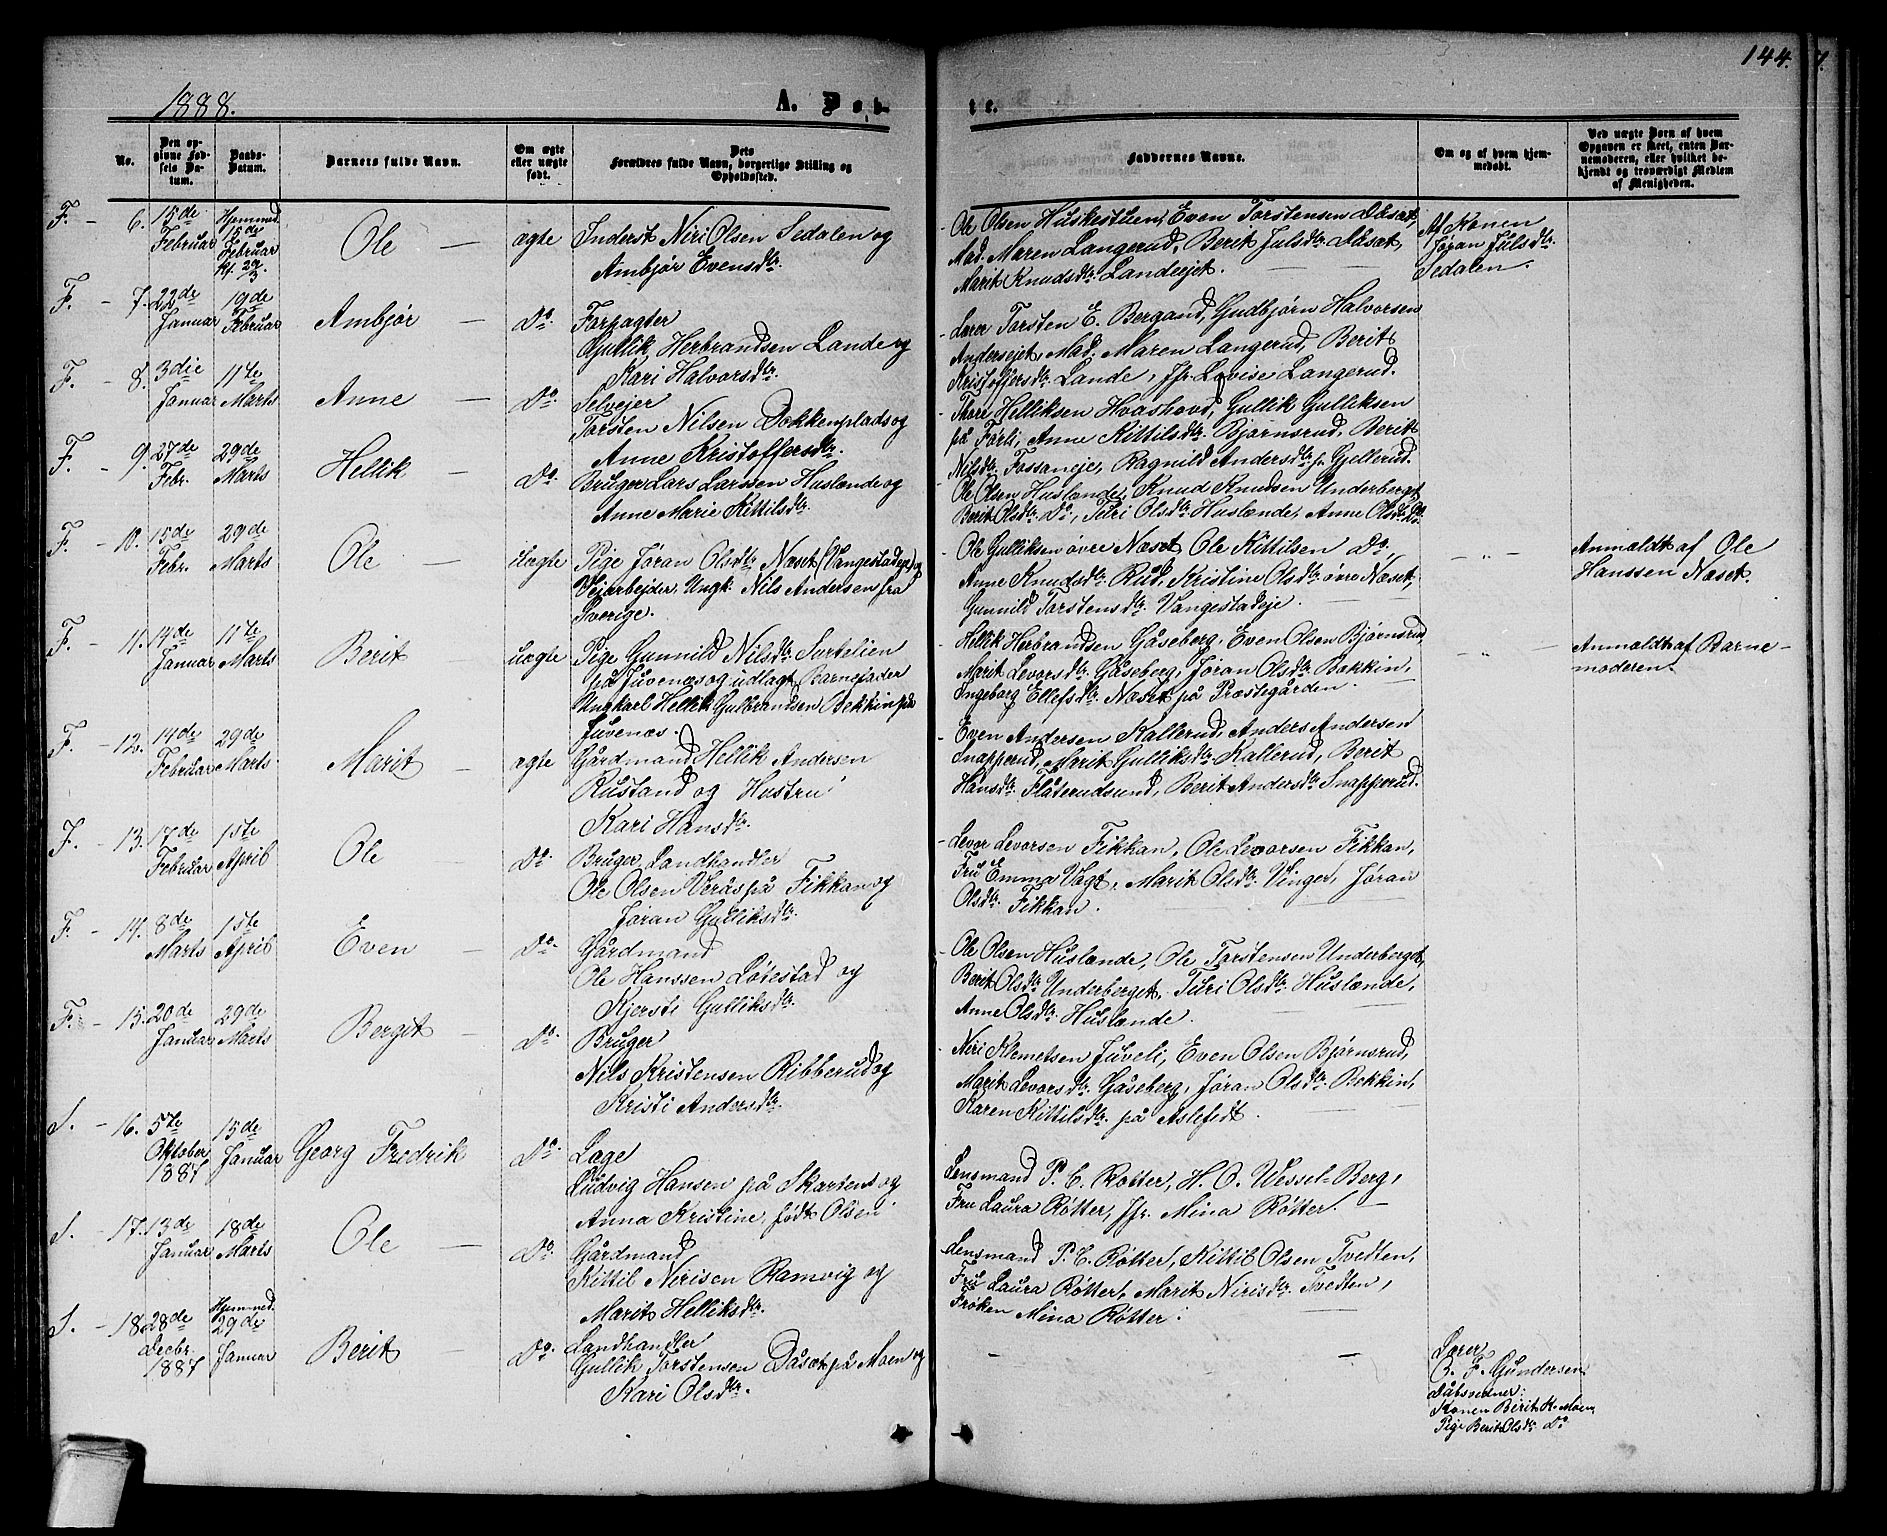 144.
1888.
A. Døb-
te.
No.
Den opgivne Fødsels Datum.
Daabs-Datum.
Barnets fulde Navn.
Om ægte eller uægte født.
Dets Forældres fulde Navn, borgerlige Stilling og Opholdssted.
Faddernes Navne.
Om og af hvem hjemmedøbt.
Ved uægte Børn af hvem Opgaven er skeet, enten Barnemoderen, eller hvilket bekjendt og troværdigt Medlem af Menigheden.
F. - 6. 15de Februar
Hjemmed. 15de Februar
Ole — ægte
Inderst Niri Olsen Sedalen og
Ambjør Evensdtr.
Ole Olsen Huskestuen, Even Torstensen Daset,
Mad. Maren Langerud, Berit Julsdtr. Daset,
Marit Knudsdtr. Landeiet.
Af Konen
Jøran Julsdtr.
Sedalen.
F. - 7. 22de Januar
19de Februar
Ambjør — Do.
Forpagter
Gullik Herbrandsen Lande og
Kari Halvorsdtr.
Lærer Torsten E. Bergand, Gudbjørn Halvorsen
Anderseiet, Mad. Maren Langerud, Berit
Kristoffersdtr. Lande, Jfr. Lovise Langerud.
F. - 8. 3die Januar
11te Marts
Anne — Do.
Selveier
Torsten Nilsen Dokkenplads og
Anne Kristoffersdtr.
Thore Helliksen Hvashovd, Gullik Gulliksen
påFørli, Anne Kittilsdtr. Bjørnsrud, Berit
Nilsdtr. Fossaneje, Ragnild Andersdtr. Gjellerud.
F. - 9. 27de Febr.
29de Marts
Hellik — Do.
Bruger Lars Larssen Huslænde og
Anne Marie Kittilsdtr.
Ole Olsen Huslænde, Knud Knudsen Underberget
Berit Olsdtr. Do., Turi Olsdtr. Huslænde, Anne Olsdtr. Do.
F. - 10. 15de Febr.
29de Marts
Ole — uægte
Pige Jøran Olsdtr. Næset (Vangestadeje) og
Veiarbejder, Ungk. Nils Andersen fra
Sverige.
Ole Gulliksen øvre Næset, Ole Kittilsen Do.,
Anne Knudsdtr. Rud, Kristine Olsdtr. øvre Næset,
Gunnild Torstensdtr. Vangestadeje.
— „ —
Anmeldt af Ole
Hanssen Næset.
F. - 11. 14de Januar
11te Marts
Berit — uægte
Pige Gunnild Nilsdtr. Sortelien
på Juvenæs og udlagt Barnefader
Ungkarl Hellik Gulbrandsen Bekkin på
Juvenæs.
Hellik Herbrandsen Gåseberg, Even Olsen Bjørnsrud
Marit Levorsdtr. Gåseberg, Jøran Olsdtr. Bekkin,
Ingeborg Ellefsdtr. Næset på Præstegården.
— „ —
Anmeldt af Barne-
moderen.
F. - 12. 14de Februar
29de Marts
Marit — ægte
Gårdmand Hellik Andersen
Rustand og Hustru
Kari Hansdtr.
Even Andersen Kallerud, Anders Andersen
Snapperud, Marit Gulliksdtr. Kallerud, Berit
Hansdtr. Flåterudsund, Berit Andersdtr. Snapperud.
F. - 13. 17de Februar
1ste April
Ole — Do.
Bruger, Landhandler
Ole Olsen Verås på Fikkan og
Jøran Gulliksdtr.
Levor Levorsen Fikkan, Ole Levorsen Fikkan,
Fru Emma Vogt, Marit Olsdtr. Vinger, Jøran
Olsdtr. Fikkan.
F. - 14. 8de Marts
1ste April
Even — Do.
Gårdmand
Ole Hanssen Løvestad og
Kjersti Gulliksdtr.
Ole Olsen Huslænde, Ole Torstensen Underberget,
Berit Olsdtr. Underberget, Turi Olsdtr. Huslænde,
Anne Olsdtr. Huslænde.
F. - 15. 20de Januar
29de Marts
Bergit — Do.
Bruger
Nils Kristensen Ribberud og
Kristi Andersdtr.
Niri Klemetsen Juveli, Even Olsen Bjørnsrud,
Marit Levorsdtr. Gåseberg, Jøran Olsdtr. Bekkin,
Karen Kittilsdtr. på Aslefedt.
S. - 16. 5te Oktober 1887
15de Januar
Georg Fredrik Do.
Læge
Ludvig Hansen på Skartens og
Anna Kristine, født Olsen
Lensmand P. C. Røtter, H. O. Wessel-Berg,
Fru Laura Røtter, Jfr. Mina Røtter.
S. - 17. 13de Januar
18de Marts
Ole — Do.
Gårdmand
Kittil Nirisen Ramvig og
Marit Helliksdtr.
Lensmand P. C. Røtter, Kittil Olsen Tvedten,
Fru Laura Røtter, Marit Nirisdtr. Tvedten,
Frøken Mina Røtter.
S. - 18. 28de Decbr. 1887
Hjemmed. 29de Januar
Berit — Do.
Landhandler
Gullik Torstensen Dåset på Moen og
Kari Olsdtr.
Lærer
B. F. Gundersen
Dåbsvidner:
Konen Berit K. Moen,
Pige Berit Olsdtr. Do